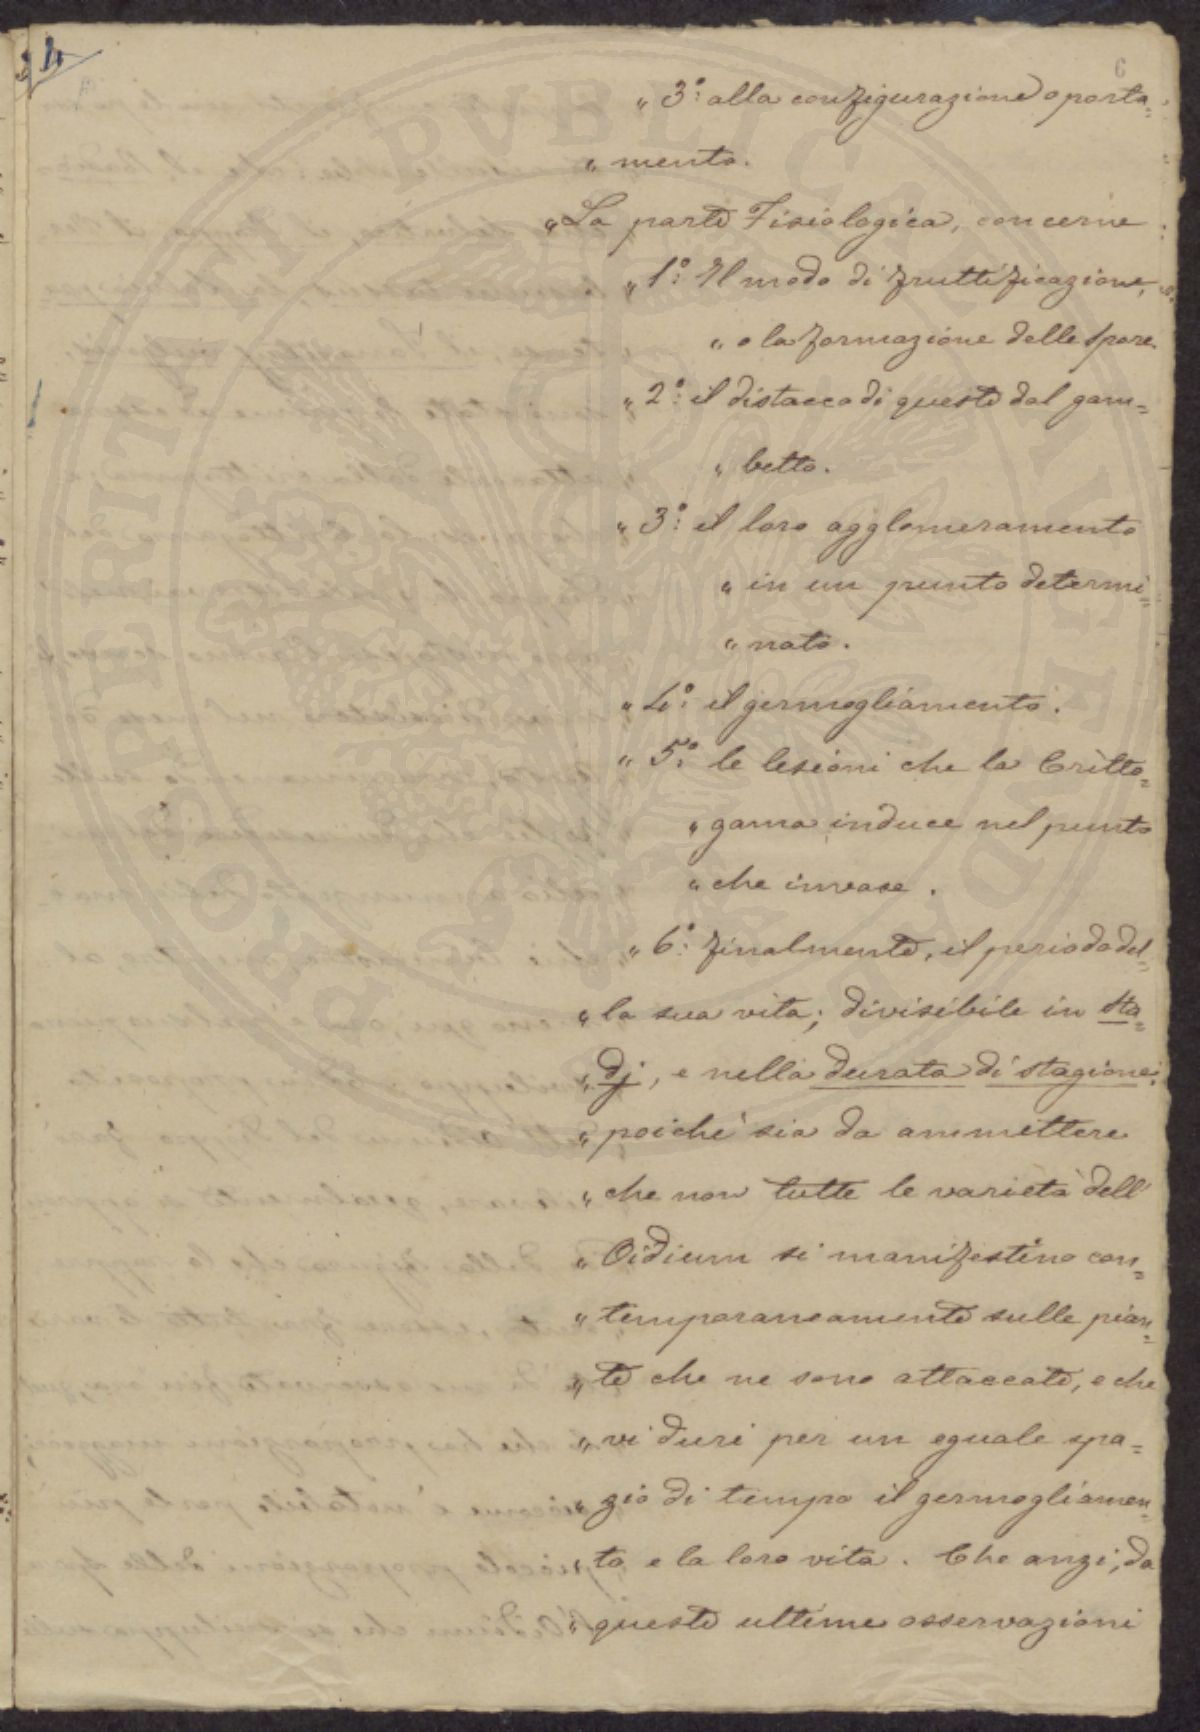 4
6
" 3.° alla configurazione o porta=
" mento.
"La parte Fisiologica, concerne
" 1.° Il modo di fruttificazione,
" o la formazione delle Spore.
" 2.° il distacco di queste dal gam=
" betto.
" 3.° il loro agglomeramento
" in un punto determi=
" nato.
" 4.° il germogliamento.
" 5.° le lesioni che la Critto=
" gama induce nel punto
" che invase.
" 6.° finalmente, il periodo del=
" la sua vita; divisibile in sta=
" dj, e nella durata di stagione;
" poiché sia da ammettere
" che non tutte le varietà dell'
" Oidium si manifestino con=
" temporaneamente sulle pian=
" te che ne sono attaccate, o che
" vi duri per un eguale spa=
" zio di tempo il germogliamen=
" to e la loro vita. Che anzi, da
" queste ultime osservazioni
PROSPERITATI PUBLICAE AUGENDAE